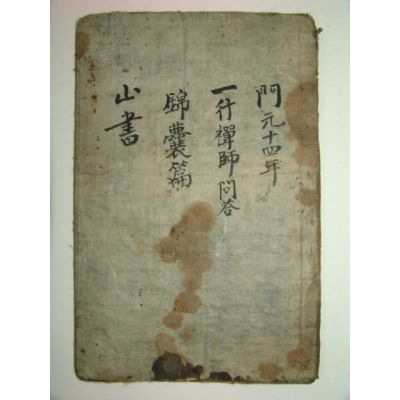 門元十四年
一行禪師問答
錦囊裝篇
山書